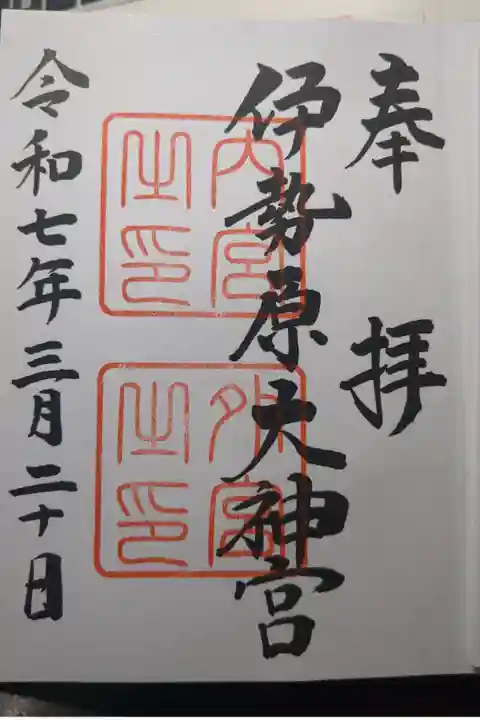 奉拝
伊勢原大神宮
内宮之印
外宮之印
令和七年三月二十日